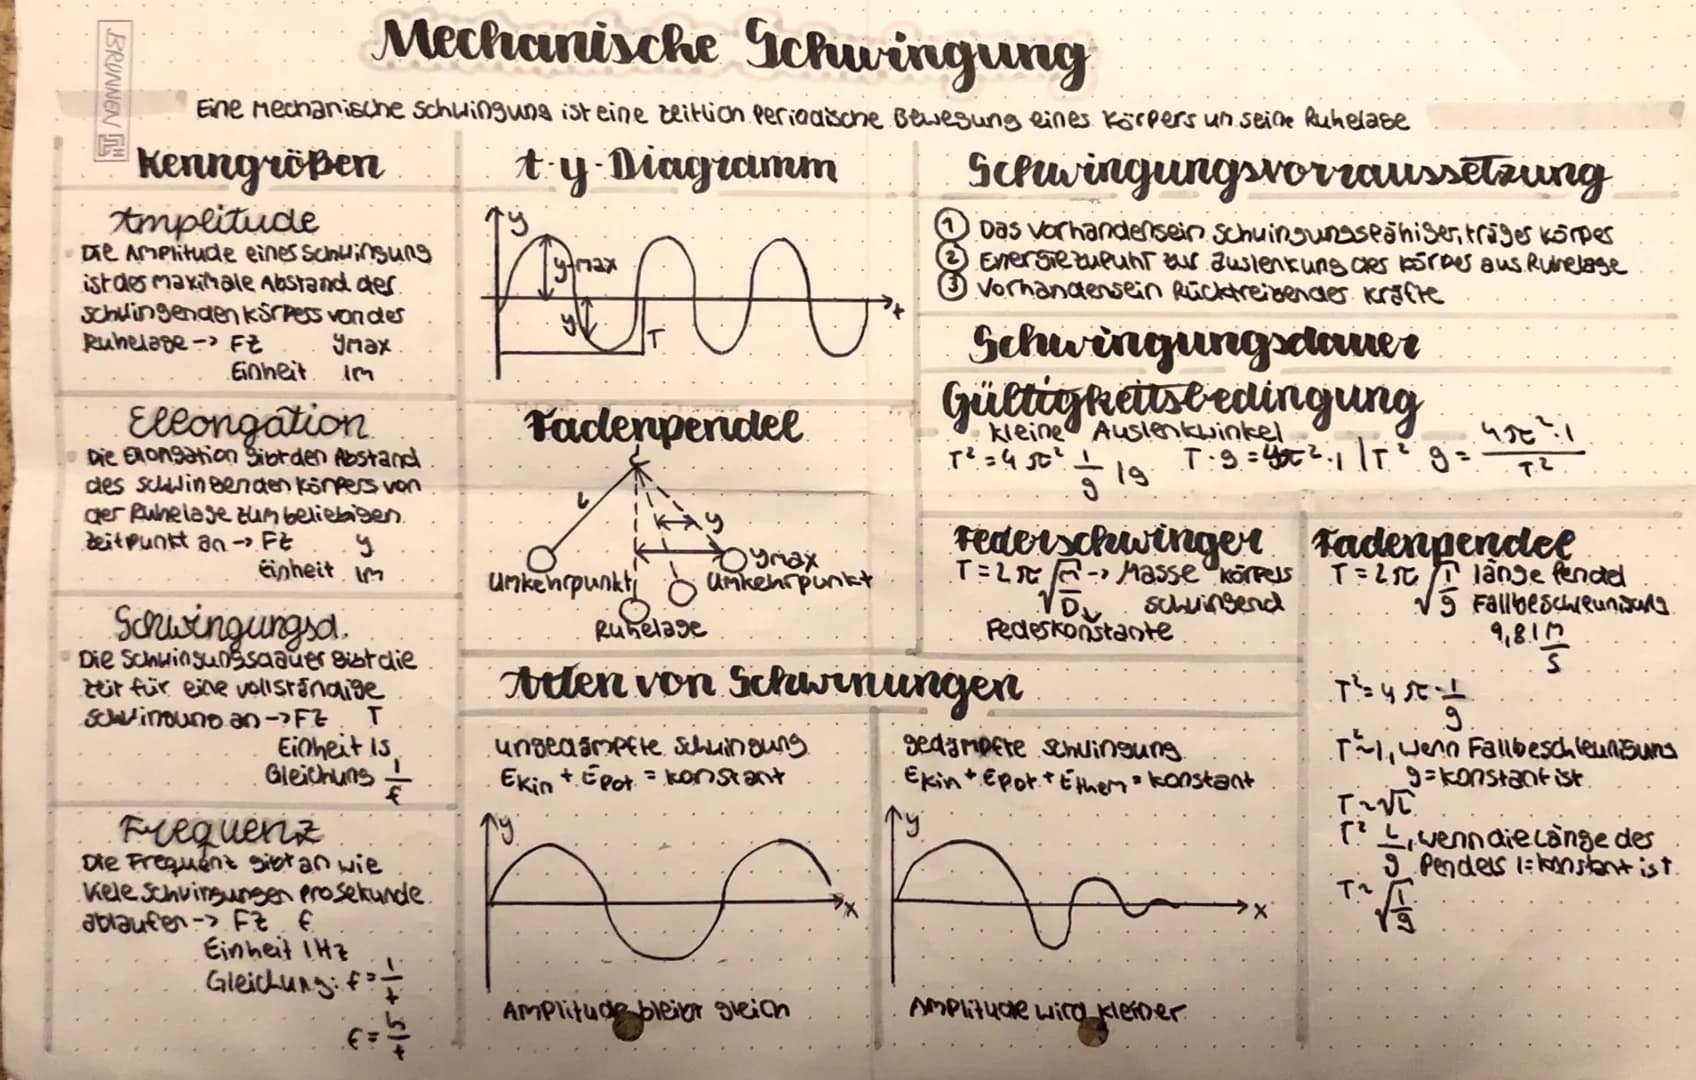 Mechanische Schwingung
BRUNNEN
Eine Mechanische Schwingung ist eine zeitlich periodische Bewegung eines Körpers um seine Ruhelage
Kenngrößen
Amplitude
Die Amplitude eines Schwingung
ist des maximale Abstand der
schwingenden körpers von der
Ruhelage -> FZ ymax
Einheit 1m
Ellongation
Die Elongation gibt den Abstand
des schwingenden Körpers von
der Ruhelage zum beliebigen
Zeitpunkt an -> FZ y
Einheit 1m
Schwingungsd.
Die Schwingungsdauer gibt die
zeit für eine vollständige
schwingung an -> FZ T
Einheit 1s
Gleichung 1/f
Frequenz
Die Frequenz gibt an wie
viele Schwingungen pro Sekunde
ablaufen -> FZ f
Einheit 1Hz
Gleichung: f = 1/t
f = n/t
t-y-Diagramm
y
y-max
y
T
x
Fadenpendel
l
y
ymax
Umkehrpunkt
Umkehrpunkt
Ruhelage
Schwingungsvorraussetzung
① Das vorhandensein schwingungsfähiger, träges Körper
② Energiezufuhr zur Auslenkung des körper aus Ruhelage
③ Vorhandensein Rücktreibender Kräfte
Schwingungsdauer
Gültigkeitsbedingung
kleine Auslenkwinkel
T² = 4π² 1/g |g T·g = 4π²·1 |T² g = 4π²·1/T²
Federschwinger
T = 2π √m/D -> Masse körpers
schwingend
Federkonstante
Fadenpendel
T = 2π √1/g länge Pendel
Fallbeschleunigung
9,81 m/s
T² = 4π · 1/g
T² ~ 1, wenn Fallbeschleunigung
g = konstant ist
T ~ √L
T² L/g, wenn die Länge des
Pendels l = konstant ist
T ~ √1/g
Arten von Schwinungen
ungedämpfte Schwingung
Ekin + Epot = konstant
y
x
Amplitude bleibt gleich
gedämpfte schwingung
Ekin + Epot + Etherm = konstant
y
x
Amplitude wird kleiner